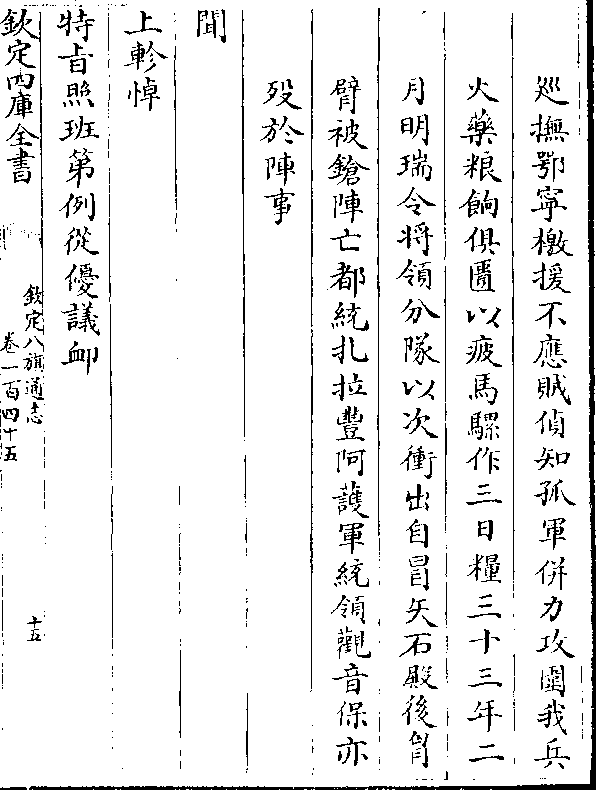 巡撫鄂寧檄援不應賊偵知孤軍併力攻圍我兵
火藥粮餉俱匱以疲馬騾作三日糧三十三年二
月明瑞令将領分隊以次衝出自冒矢石殿後胷
臂被鎗陣亡都統扎拉豐阿䕶軍統領觀音保亦
殁於陣事
聞
上軫悼
特㫖照班第例從優議䘏
欽定四庫全書
欽定八旗通志
卷一百四十五
十五